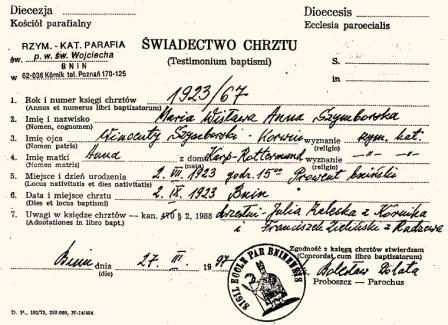 Diecezja
Kościół parafialny
Dioecesis
Ecclesia paroecialis
RZYM. - KAT. PARAFIA
p. w. św. Wojciecha
BNIN
w 62-036 Kórnik tel. Poznań 170-125
ŚWIADECTWO CHRZTU
(Testimonium baptismi)
S.
in
1. Rok i numer księgi chrztów 1923/67
(Annus et numerus libri baptizatorum)
2. Imię i nazwisko Maria Wisława Anna Szymborska
(Nomen, cognomen)
3. Imię ojca Wincenty Szymborski - Korwin wyznanie rzym. kat.
(Nomen patris) (religio)
4. Imię matki Anna z domu Karp-Rottermund wyznanie -"- -"-
(Nomen matris) (nata) (religio)
5. Miejsce i dzień urodzenia 2. VII. 1923 godz. 15oo Prowent bniński
(Locus nativitatis et dies nativitatis)
6. Data i miejsce chrztu 2. IX. 1923 Bnin
(Dies et locus baptismi)
7. Uwagi w księdze chrztów — kan. 470 § 2, 1988 chrzestni - Julia Zaleska z Kórnika
(Adnotationes in libro bapt.) i Franciszek Zieliński z Radzewa
Zgodność z księgą chrztów stwierdzam
(Concordat cum libro baptizatorum)
Bnin dnia 27. III. 1997
(die)
Bolesław
Proboszcz — Parochus
SIGIL ECCLAE PAR BNINENSIS
D. P., 102/73, 250.000, N-14/464